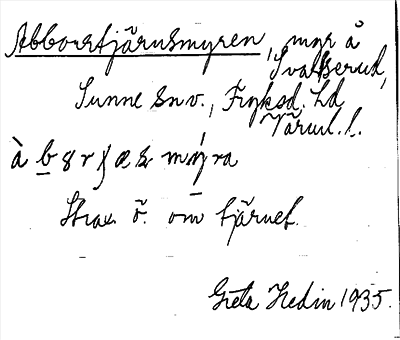 Abborrtjärnsmyren, myr å
Svartserud,
Sunne snv., Fryksd. hd
Värml. l.
Strax ö. om tjärnet.
Greta Hedin 1935.